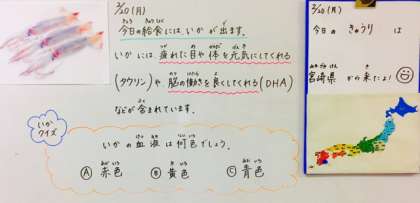 2/20(月)
今日の給食にはいかが出ます。
いかには疲れた目や体を元気にしてくれる
(タウリン)や脳の働きを良くしてくれる(DHA)
などが含まれています。
いか
クイズ
いかの血液は何色でしょう。
Ⓐ赤色 Ⓑ黄色 Ⓒ青色
2/20(月)
今日の きゅうり は
宮崎県 から来たよ!